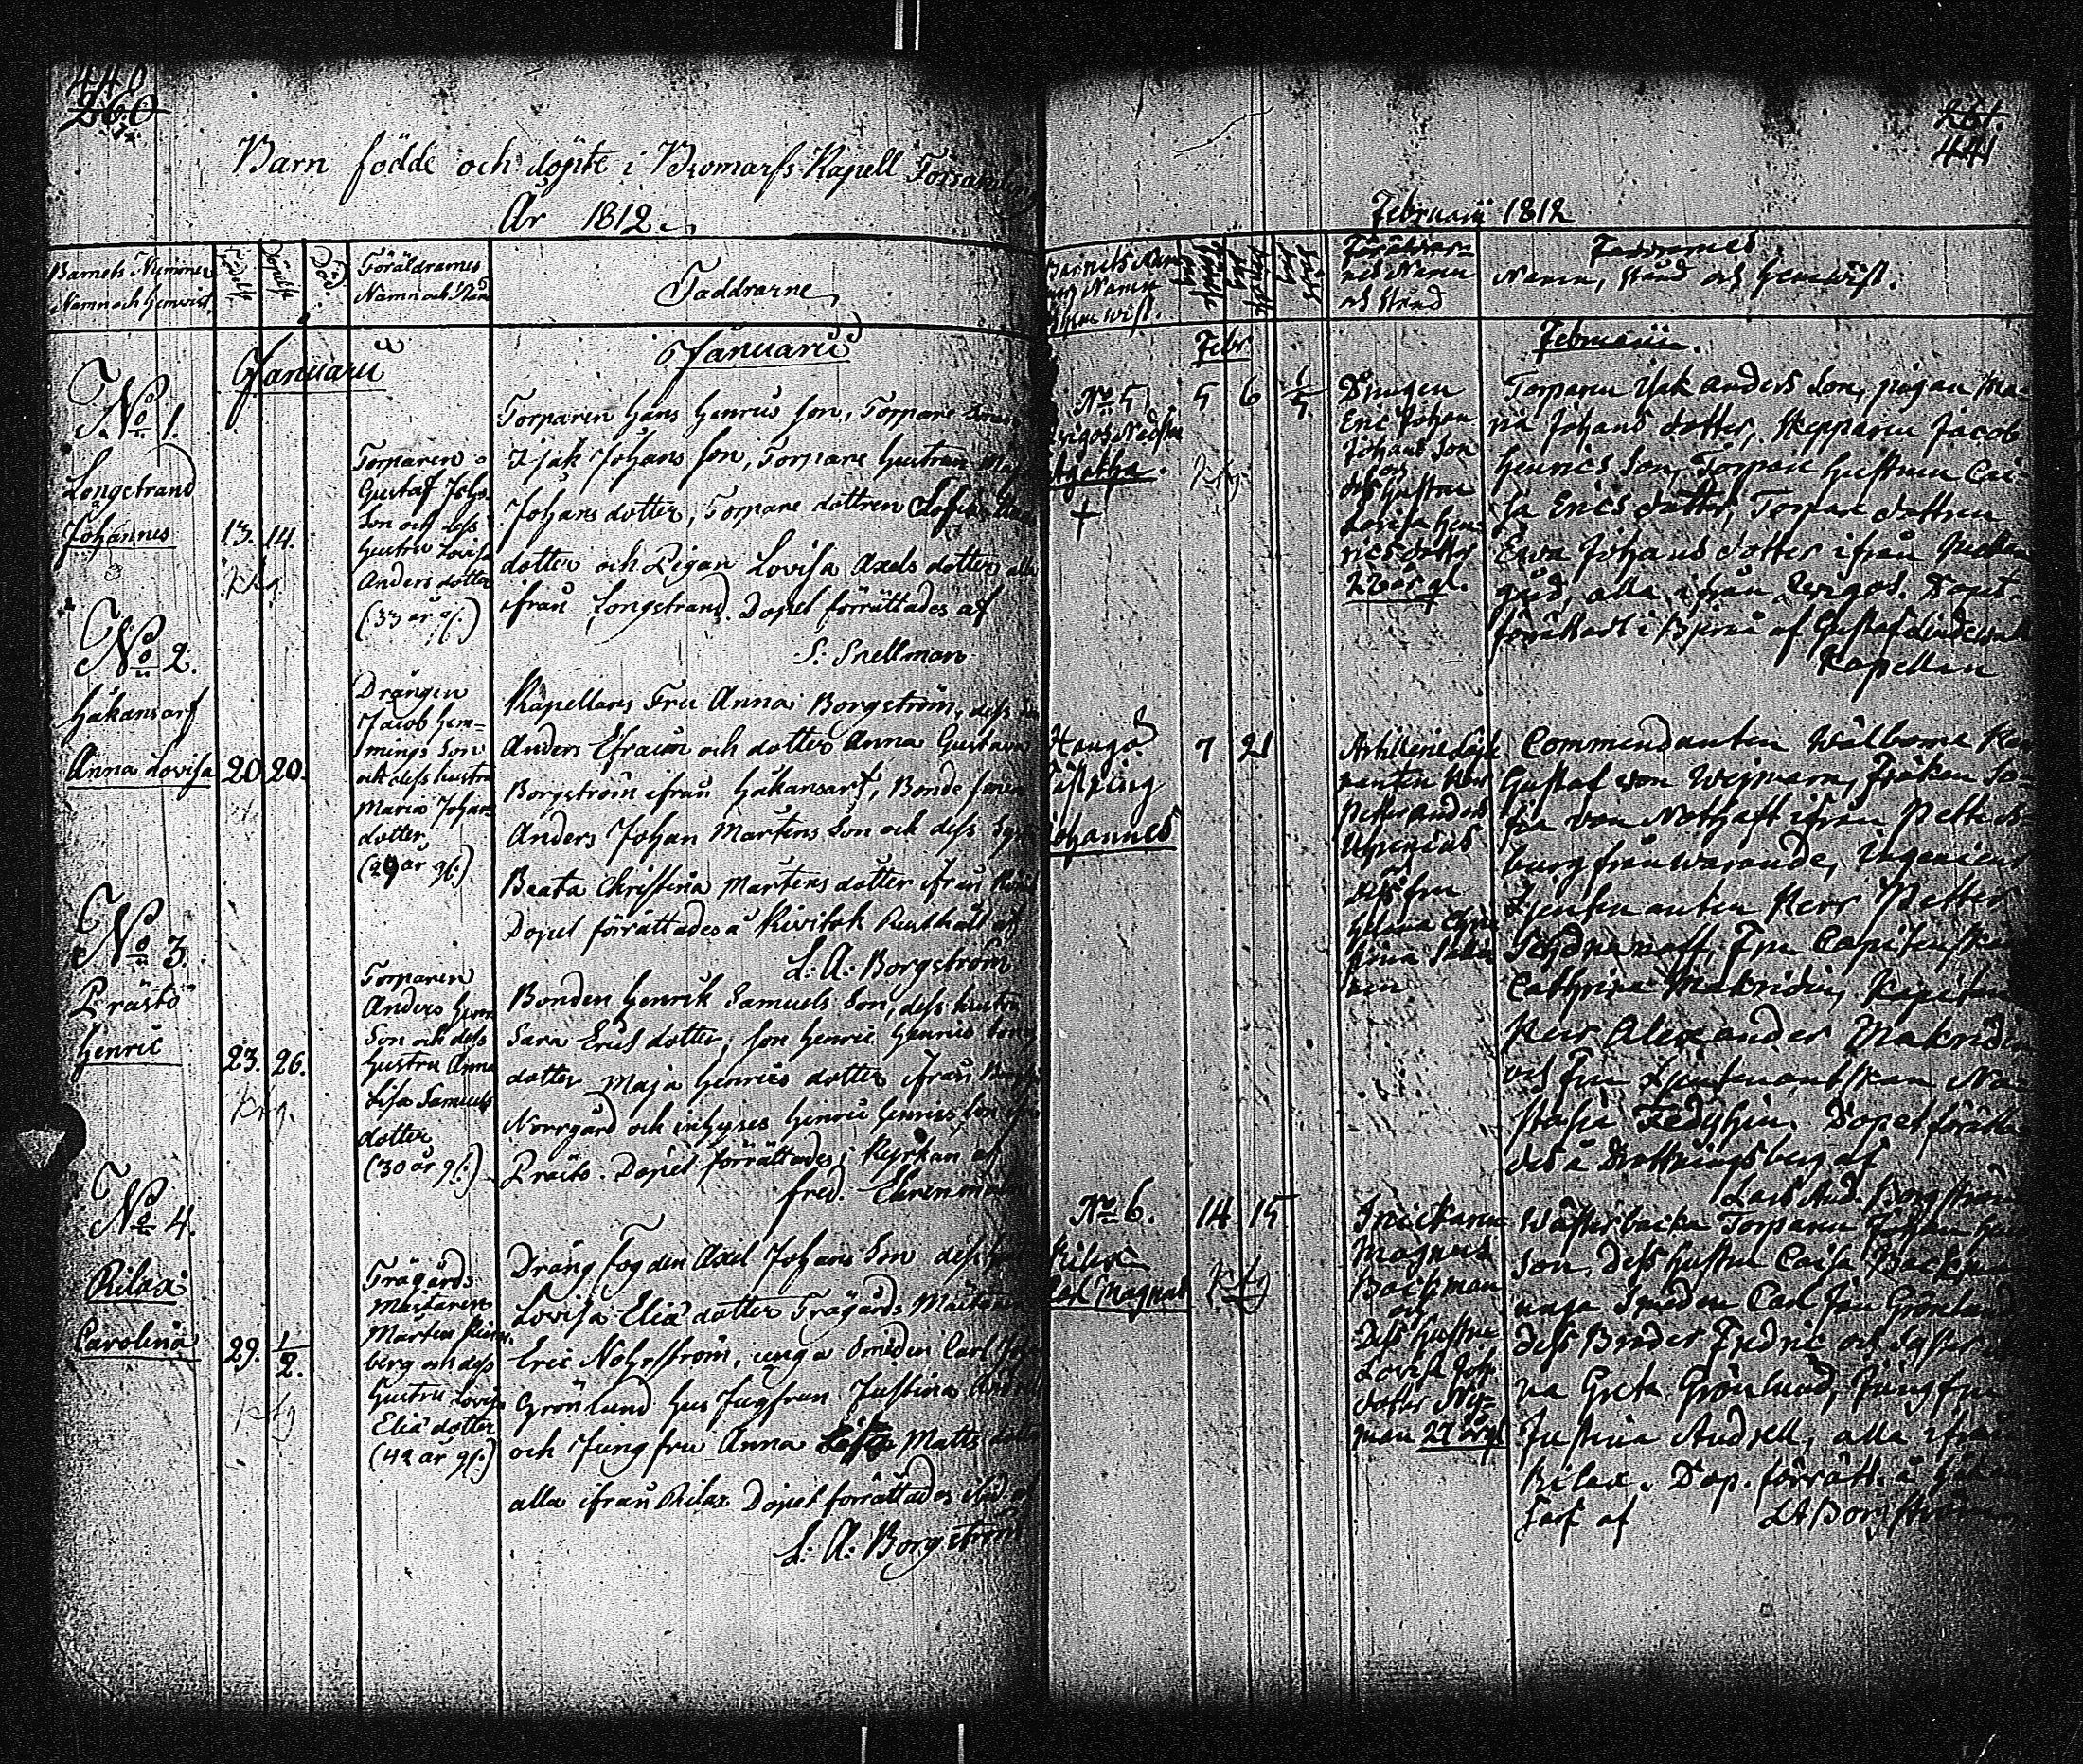 440
260
Barn födde och döpte i Bromarfs Kapell Församling
År 1812.
Barnets Nummer
Namn och Hemvist
Födelse
Döpelse
Död.
Föräldrarnes
Namn och Stånd
Faddrarne
Januarii
Januarii
No 1.
Longstrand
Johannes
13. 14.
Torparen
Gustaf Johs
Son och dess
hustru Lovisa
Anders dotter
(33 år gl.)
Torparen Hans Henrics son, Torpare Sonen
Isak Johans son, Torpare hustrun Maja
Johans dotter, Torpare dottren
dotter och Pigan Lovisa Axels dotter, alla
ifrån Longstrand. Dopet förrättades af
S. Snellman
No 2.
Håkansarf
Anna Lovisa
20. 20.
Drängen
Jacob Hem-
mings Son
och dess hustru
Maria Johans
dotter
(29 år gl.)
Kapellans Fru Anna Borgström, dess son
Anders Efraim och dotter Anna Gustava
Borgström ifrån Håkansarf, Bonde sonen
Anders Johan Mårtens Son och dess Syster
Beata Christina Mårtens dotter ifrån
Dopet förrättades å Rivitok Rusthåll af
L: A: Borgström
No 3.
Prästö
Henric
23. 26.
Torparen
Anders Henr
Son och dess
Hustru Anna
Lisa Samuels
dotter
(30 år gl.)
Bonden Henrik Samuels Son, dess hustru
Sara Erics dotter, son Henric Henrics Son
dotter Maja Henrics dotter ifrån
Norrgård och inhyses Henric Henrics Son ifrån
Prästö. Dopet förrättades i Kyrkan af
Fred. Ehrenman
No 4.
Rilax
Carolina
29. 1/2.
Trägårds
Mästaren
Mårten
berg och dess
Hustru Lovisa
Eliæ dotter
(42 år gl.)
Dräng fogden Axel Johans Son dess hustru
Lovisa Eliæ dotter Trägårds Mästaren
Eric Nohrström, unga Smeden Carl Joh
Grönlund Hus Jungfrun Justina Andsell
och Jungfru Anna Matts dotter
alla ifrån Rilax Dopet förrättades af
L: A: Borgström
441
Februarii 1812
Barnets
och Namn
Hemvist.
Föräldrar-
nes Namn
och Stånd
Faddrarnes
Namn, Stånd och Hemvist.
Febr
Februarii.
No 5.
Agatha.
5 6
Drängen
Eric Johan
Johans Son
och
dess Hustru
Lovisa Hen-
rics dotter
22 år gl.
Torparen Isak Anders Son, pigan Ma-
ria Johans dotter, Skepparen Jacob
Henrics Son, Torpare Hustrun Cai-
sa Erics dotter, Torpare dottren
Ewa Johans dotter ifrån
gård, alla ifrån Dopet
förrättadt i Bjernå af Gustaf
Kapellan
Hangö
Fästning
Johannes
7 21
Artillerie Lieute-
nanten Herr
Petter Anders
och
dess Fru
Commendanten Wälborne Herr
Gustaf von Weymarn, Fröken So-
fia von Nothaft ifrån Petters-
burg frånwarande, Ingenieur
Lieutenanten Herr Petter
Fru Capitenskan
Cathrina Makridin, Kapiten
Herr Alexander Makridin
och Fru Lieutenantskan Na-
stasia Fedyshin. Dopet förrätta-
des å Drottningsberg af
Lars And. Borgström
No 6.
Rilax
Carl Magnus
14 15
Snickaren
Magnus
Backman
och
dess Hustru
Lovisa Joh
dotter Ny-
man 27 år gl
Wästerbacka Torparen Johan
Son, dess Hustru Caisa Backman
unga Smeden Carl Joh Grönlund
dess Broder Fredric och Syster
na Greta Grönlund, Jungfru
Justina Andsell, alla ifrån
Rilax. Dop. förrätt. å Håkans
arf af LA Borgström